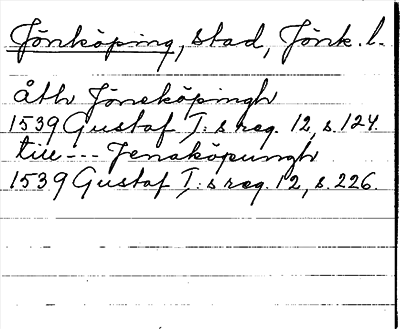 Jönköping, stad, Jönk. l.
åth Jöneköpingh
1539 Gustaf I:s reg. 12, s. 124.
till --- Jenaköpungh
1539 Gustaf I:s reg. 12, s. 226.